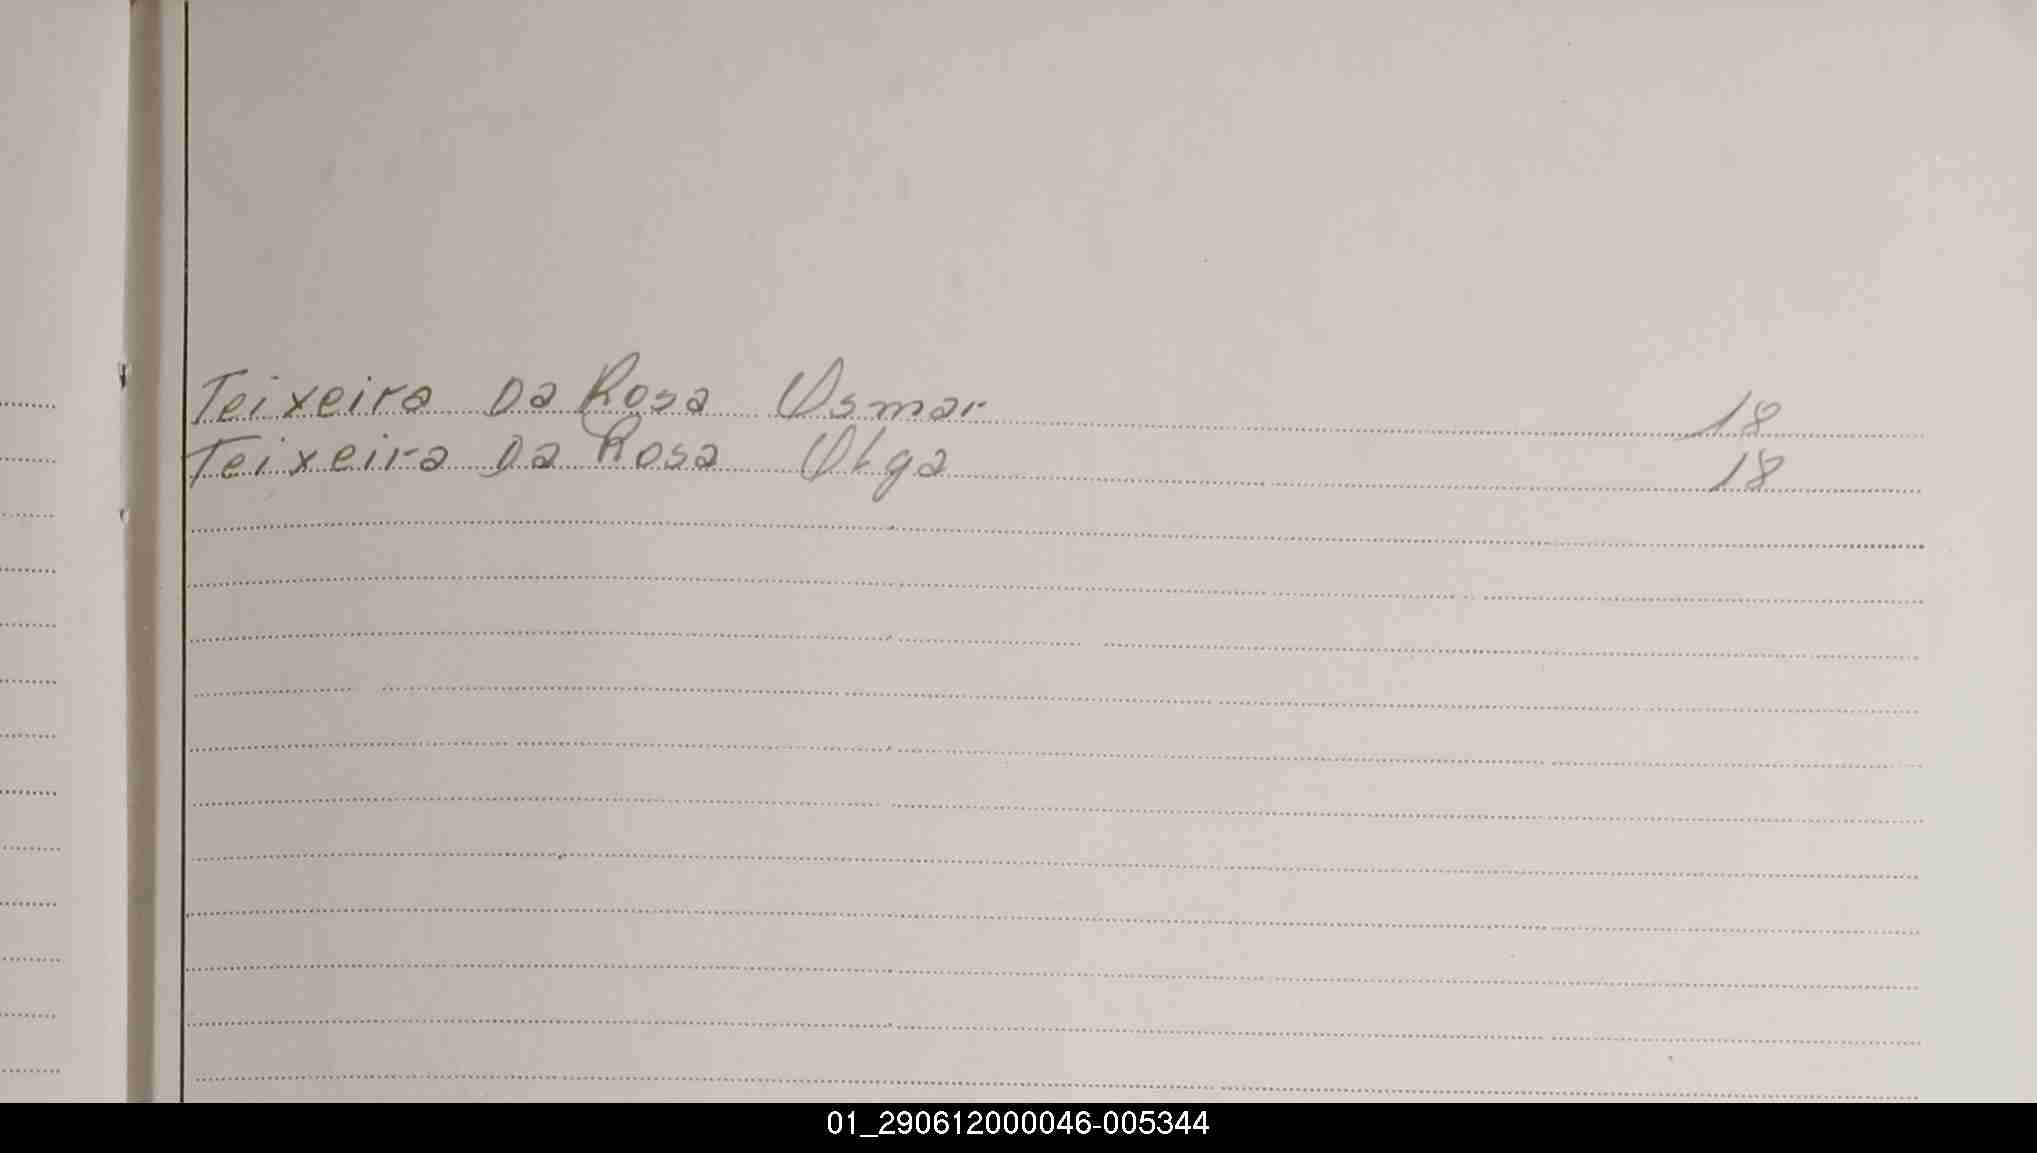 Teixeira Da Rosa Osmar 18
Teixeira Da Rosa Olga 18
01_290612000046-005344